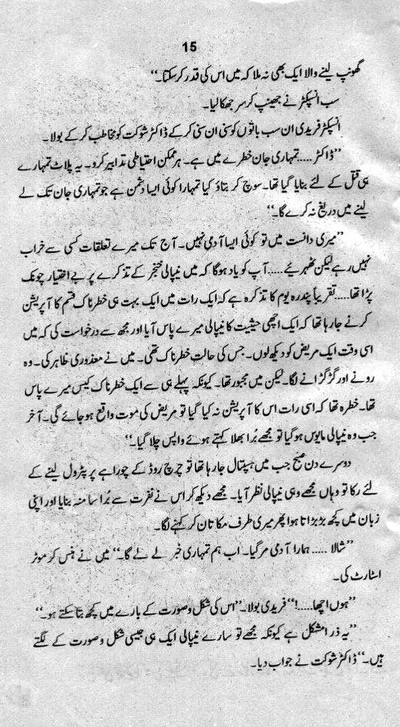 15
گھونپ لینے والا ایک بھی نہ ملا کہ میں اس کی قدر کر سکتا۔“
سب انسپکٹر نے جھینپ کر سر جھکا لیا۔
انسپکٹر فریدی ان سب باتوں کو سنی ان سنی کر کے ڈاکٹر شوکت کو مخاطب کر کے بولا۔
”ڈاکٹر..... تمہاری جان خطرے میں ہے۔ ہر ممکن احتیاطی تدابیر کرو۔ یہ پلاٹ تمہارے
ہی قتل کے لئے بنایا گیا تھا۔ سوچ کر بتاؤ کیا تمہارا کوئی ایسا دشمن ہے جو تمہاری جان تک لے
لینے میں دریغ نہ کرے گا۔“
”میری دانست میں تو کوئی ایسا آدمی نہیں۔ آج تک میرے تعلقات کسی سے خراب
نہیں رہے لیکن ٹھہرئیے..... آپ کو یاد ہوگا کہ میں نیپالی خنجر کے تذکرے پر بے اختیار چونک
پڑا تھا..... تقریباً پندرہ یوم کا تذکرہ ہے کہ ایک رات میں ایک بہت ہی خطرناک قسم کا آپریشن
کرنے جا رہا تھا کہ ایک اچھی حیثیت کا نیپالی میرے پاس آیا اور مجھ سے درخواست کی کہ میں
اسی وقت ایک مریض کو دیکھ لوں۔ جس کی حالت خطرناک تھی۔ میں نے معذوری ظاہر کی۔ وہ
رونے اور گڑگڑانے لگا۔ لیکن میں مجبور تھا۔ کیونکہ پہلے ہی سے ایک خطرناک کیس میرے پاس
تھا۔ خطرہ تھا کہ اسی رات اس کا آپریشن نہ کیا گیا تو مریض کی موت واقع ہو جائے گی۔ آخر
جب وہ نیپالی مایوس ہو گیا تو مجھے برا بھلا کہتے ہوئے واپس چلا گیا۔
دوسرے دن صبح جب میں ہسپتال جا رہا تھا تو چرچ روڈ کے چوراہے پر پٹرول لینے کے
لئے رکا تو وہاں مجھے وہی نیپالی نظر آیا۔ مجھے دیکھ کر اس نے نفرت سے برا سا منہ بنایا اور اپنی
زبان میں کچھ بڑبڑاتا ہوا پھر میری طرف مکا تان کر کہنے لگا۔
”شالا..... ہمارا آدمی مر گیا۔ اب ہم تمہاری خبر لے لے گا۔“ میں نے ہنس کر موٹر
اسٹارٹ کی۔
”ہوں اچھا.....!“ فریدی بولا۔ ”اس کی شکل و صورت کے بارے میں کچھ بتا سکتے ہو۔“
”یہ ذرا مشکل ہے کیونکہ مجھے تو سارے نیپالی ایک ہی جیسی شکل و صورت کے لگتے
ہیں۔“ ڈاکٹر شوکت نے جواب دیا۔